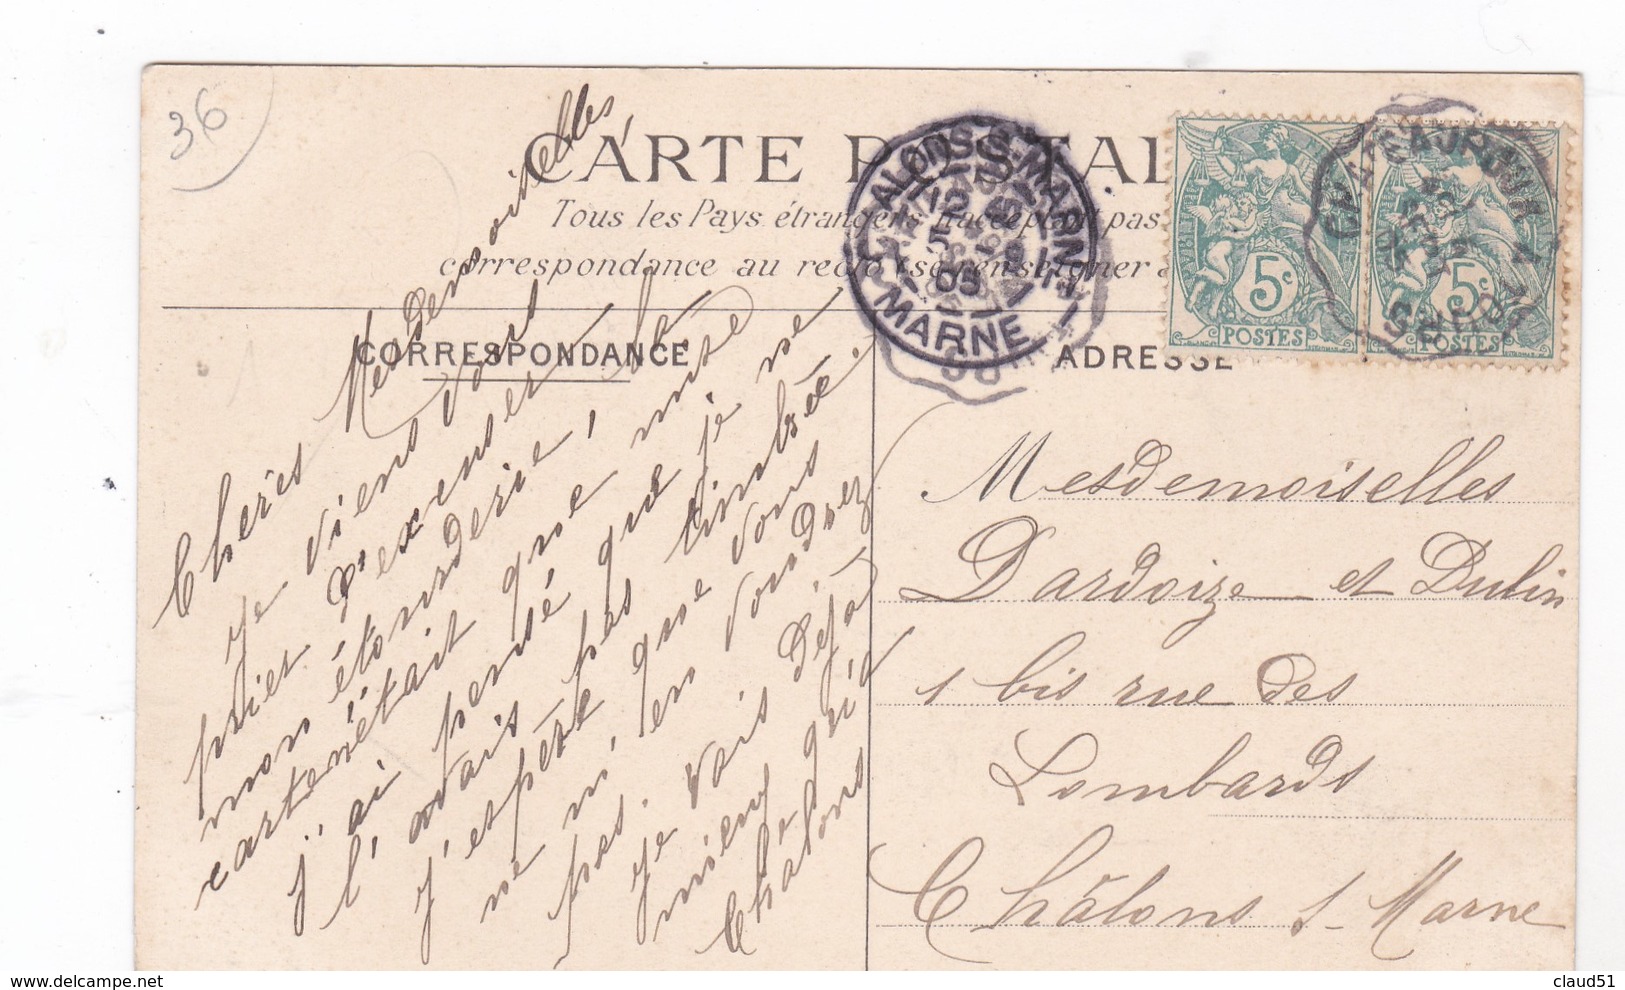 36
CARTE POSTALE
Tous les Pays étrangers n'acceptent pas
correspondance au recto (se renseigner à
CORRESPONDANCE
ADRESSE
CHALONS-S-MARNE
MARNE
CHATEAUROUX A
TOURS
5c
POSTES
5c
POSTES
Chères Mesdemoiselles
Je viens vous
prier d'excuser
mon étourderie, la
carte n'était que mise
j'ai pensé que je ne
l'avais pas timbrée.
J'espère que vous
ne m'en voudrez
pas. Je vais déjà
mieux qu'à
Châlons
Mesdemoiselles
Dardoize et Dulin
1 bis rue des
Lombards
Châlons s- Marne
claud51